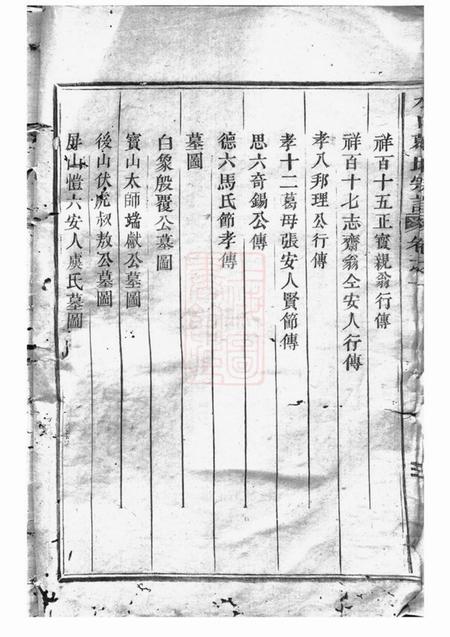 祥百十五正實親翁行傳
祥百十七志齋翁仝安人行傳
孝八邦理公行傳
孝十二葛母張安人賢節傳
思六奇錫公傳
德六馬氏節孝傳
墓圖
白象殷覆公墓圖
寶山太師端獻公墓圖
後山伏虎叔敖公墓圖
屏山愷六安人虞氏墓圖